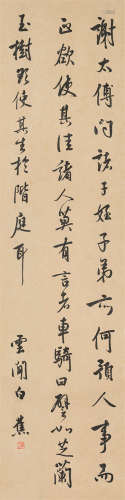 謝太傅問諸子姪子弟亦何預人事而
正欲使其佳諸人莫有言者車騎曰譬如芝蘭
玉樹欲使其生於階庭耳
雲間白蕉